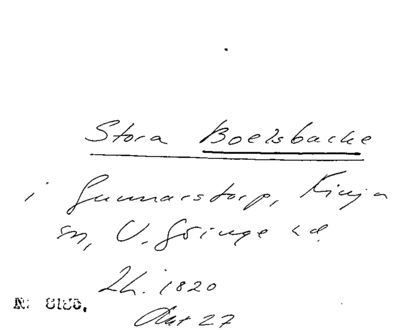 Stora Boelsbacke
i Gunnarstorp, Finja
sn, V. Göinge hd.
Lh. 1820
Akt 27